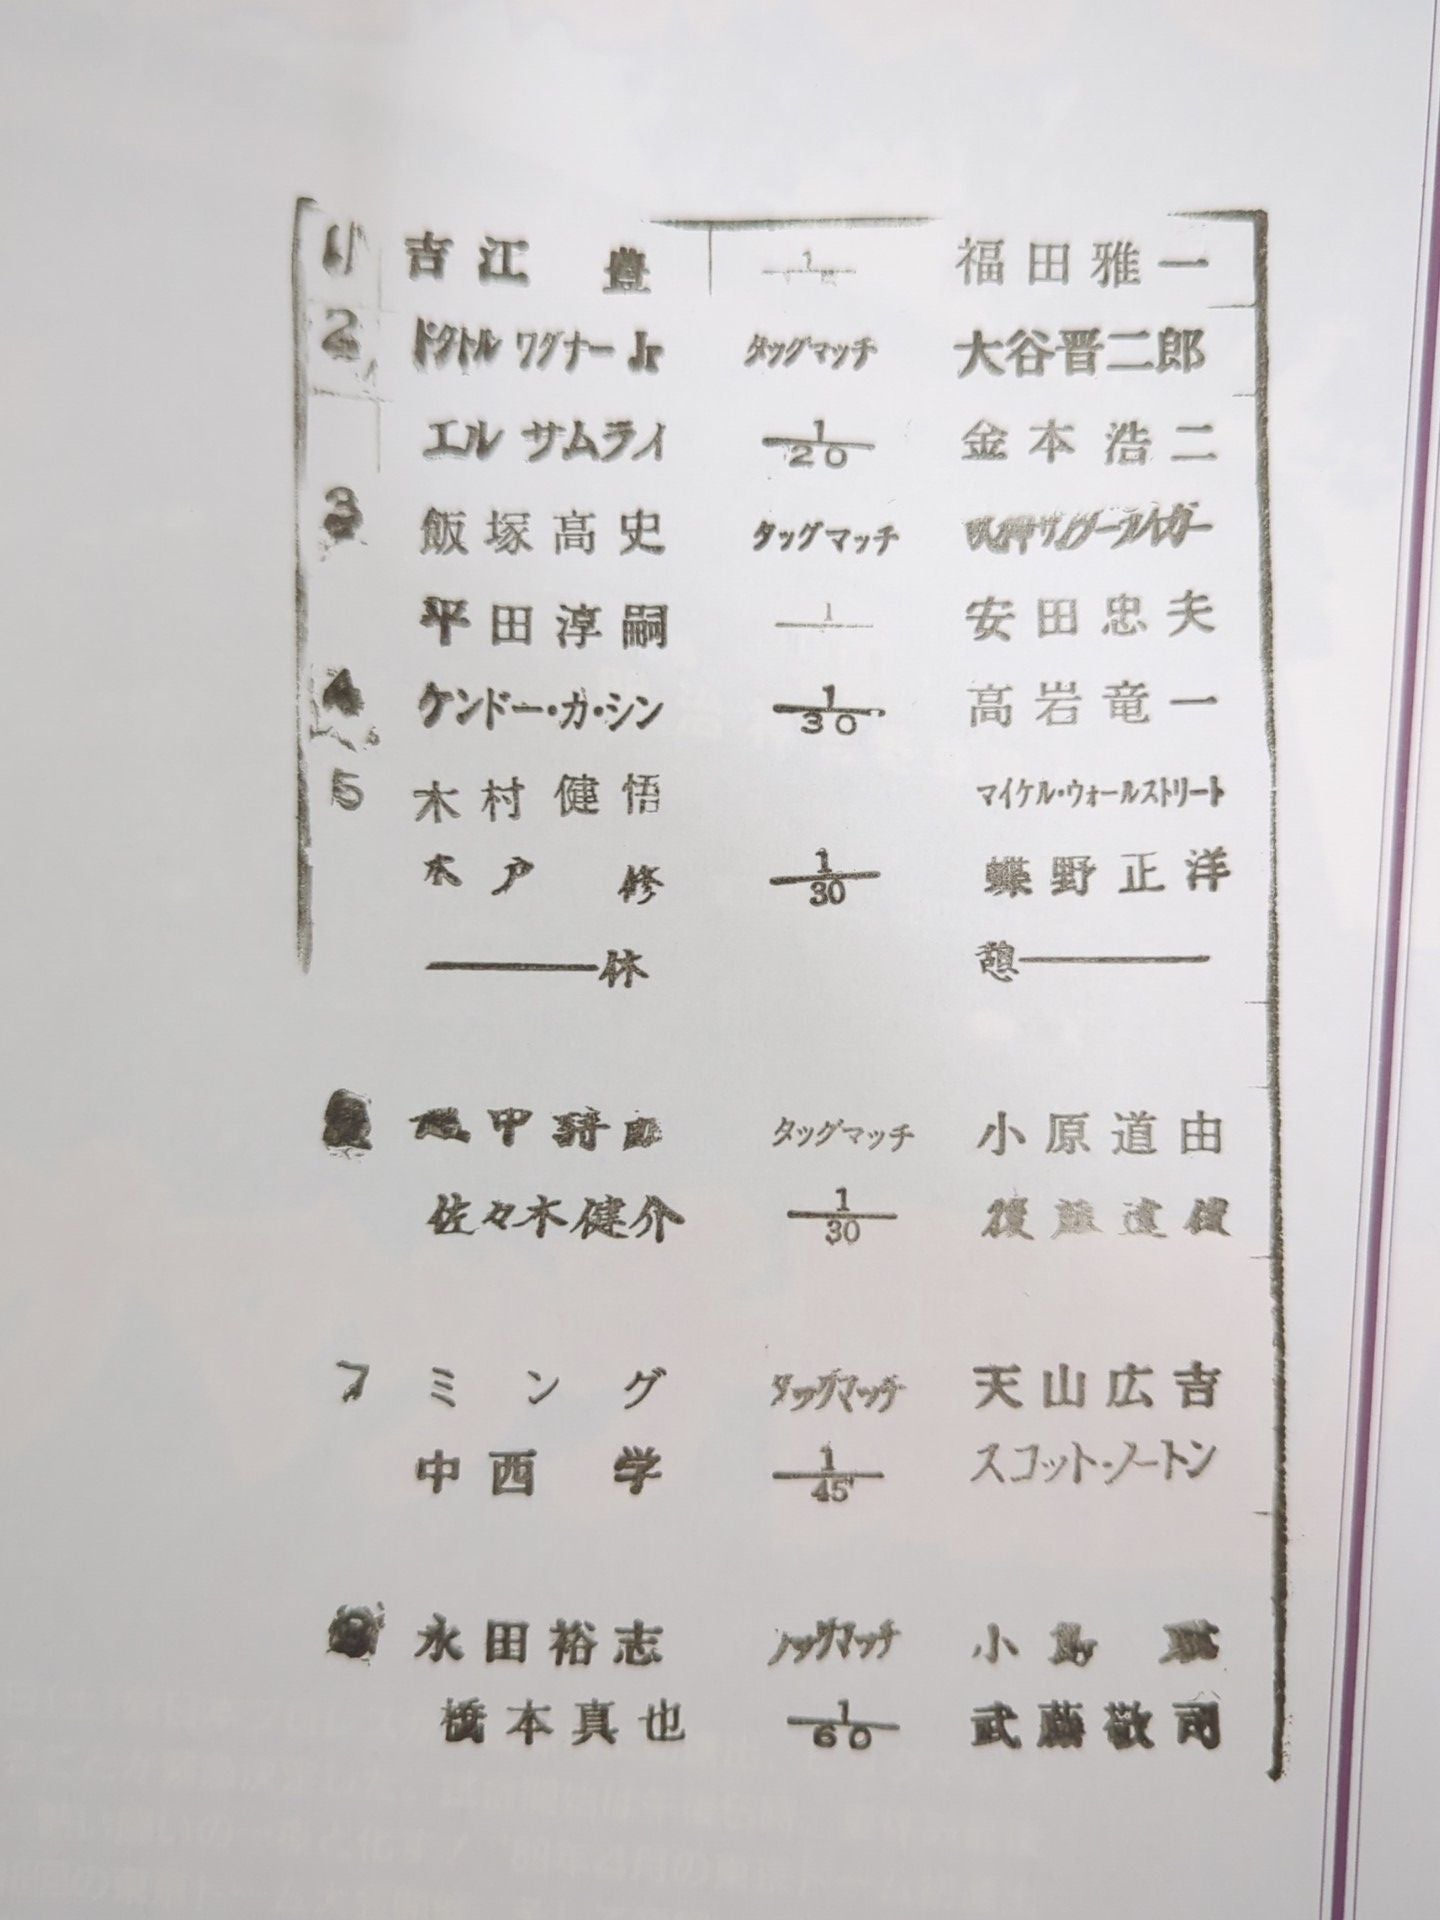 1 吉江 豊 1 福田雅一
2 ドクトル ワグナー Jr タッグマッチ 大谷晋二郎
エル サムライ 1/20 金本浩二
3 飯塚高史 タッグマッチ 獣神サンダーライガー
平田淳嗣 1 安田忠夫
4 ケンドー・カ・シン 1/30 高岩竜一
5 木村健悟 マイケル・ウォールストリート
木戸 修 1/30 蝶野正洋
休 憩
越中詩郎 タッグマッチ 小原道由
佐々木健介 1/30 後藤達俊
7 ミング タッグマッチ 天山広吉
中西 学 1/45 スコット・ノートン
8 永田裕志 タッグマッチ 小島 聡
橋本真也 1/60 武藤敬司